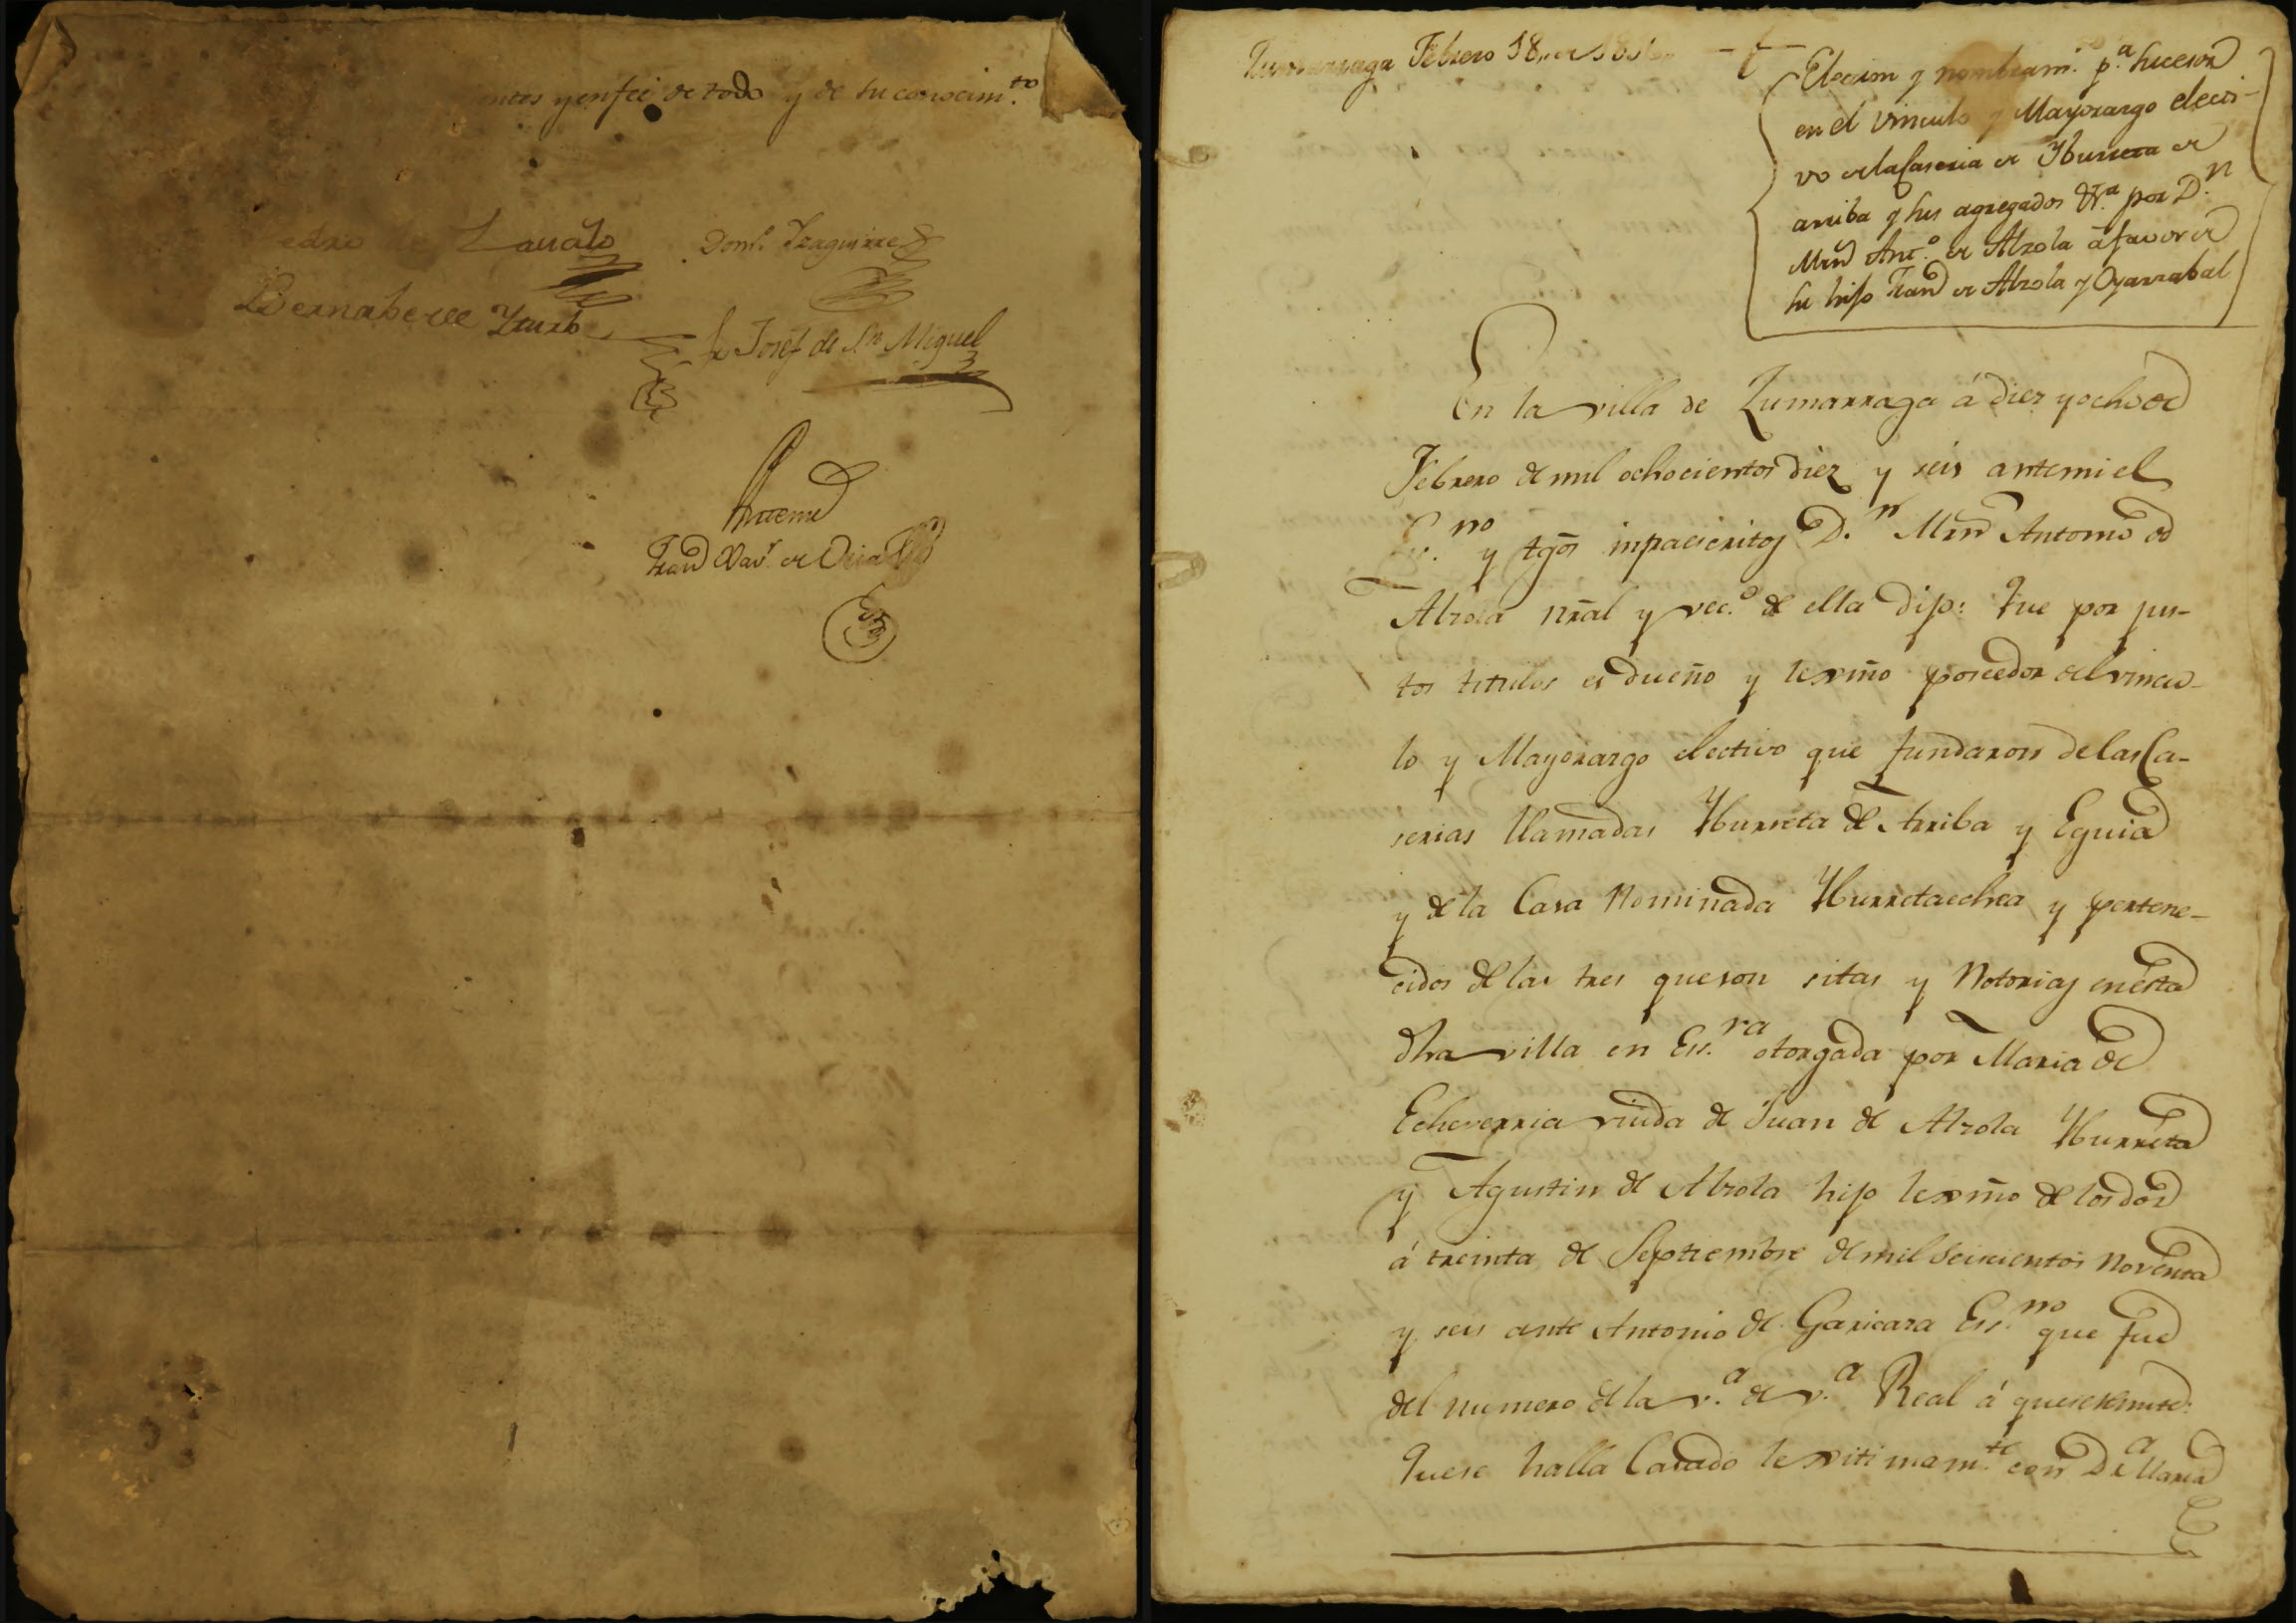 entes y en fee de todo y de su conocim.to
Pedro de Lavalo
Dom.o Yzaguirre
Bernabe de Yturbe
Fr Josef de Sn Miguel
Antemi
Fran.co Xav.r de Oria
Zumarraga Febrero 18 de 1816
Eleccion y nombram.to p.a sucesor
en el vinculo y Mayorazgo electi-
vo de la Caseria de Yburreta de
arriba y sus agregados &.a por D.n
Mrn Ant.o de Alzola á favor de
su hijo Fran.co de Alzola y Oyarzabal
En la villa de Zumarraga á diez y ocho de
Febrero de mil ochocientos diez y seis ante mi el
Es.no y tgos inpaescritos D.n Mrn Antonio de
Alzola nral y vec.o de ella dijo: Que por jus-
tos titulos es dueño y lexmo poseedor del vincu-
lo y Mayorazgo electivo que fundaron de las Ca-
serias llamadas Yburreta de Arriba y Eguia
y de la Casa Nominada Yburretaechea y pertene-
cidos de las tres que son sitas y Notorias en esta
dha villa en Ess.ra otorgada por Maria de
Echeverria viuda de Juan de Alzola Yburreta
y Agustin de Alzola hijo lexmo de los dos
á treinta de Septiembre de mil Seiscientos Noventa
y seis ante Antonio de Garicara Ess.no que fue
del numero de la v.a de v.a Real á que se remite:
Que se halla Casado lexitimam.te con D.a Maria